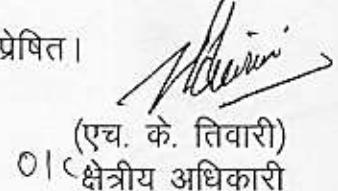 प्रेषित।
(एच. के. तिवारी)
क्षेत्रीय अधिकारी